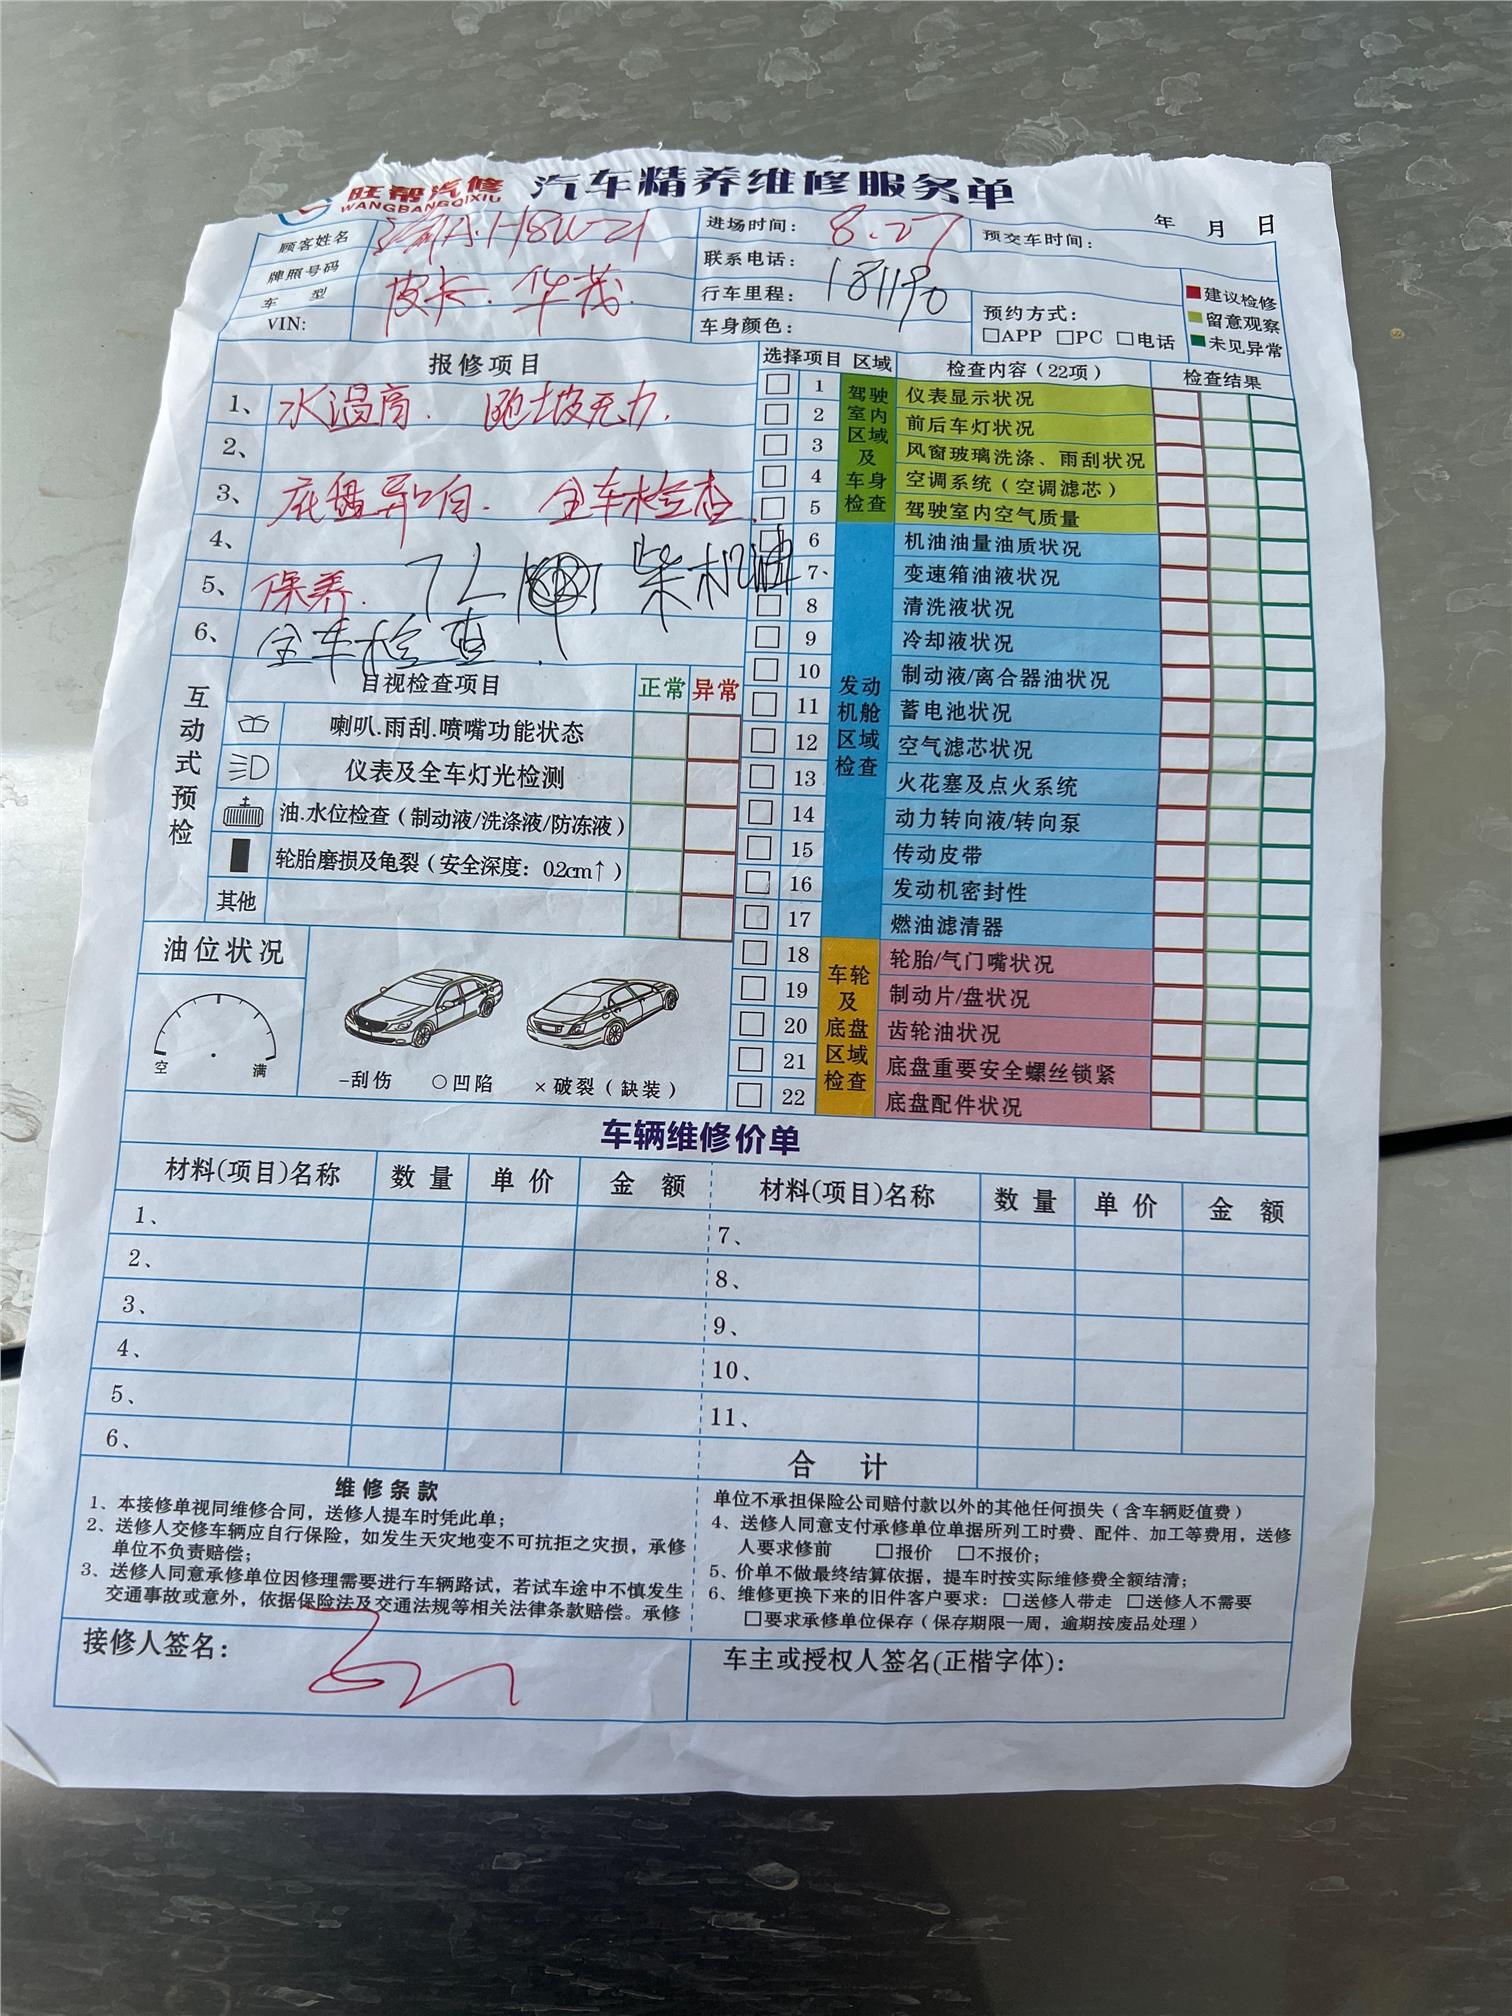 旺帮汽修 汽车精养维修服务单
WANGBANGQIXIU
年 月 日
顾客姓名 渝A·H8U21 进场时间: 8.27 预交车时间:
牌照号码 联系电话:
车 型 皮卡. 华茂. 行车里程: 181190 预约方式:
VIN: 车身颜色: □APP □PC □电话
建议检修
留意观察
未见异常
报修项目
1、 水温高. 跑坡无力.
2、
3、 底盘异响. 全车检查.
4、
5、 保养. 7L 柴机油
6、 全车检查.
互动式预检
目视检查项目 正常 异常
喇叭.雨刮.喷嘴功能状态
仪表及全车灯光检测
油.水位检查(制动液/洗涤液/防冻液)
轮胎磨损及龟裂(安全深度: 0.2cm↑)
其他
油位状况
空 满
-刮伤 ○凹陷 ×破裂(缺装)
选择项目 区域 检查内容(22项) 检查结果
驾驶室内区域及车身检查
1 仪表显示状况
2 前后车灯状况
3 风窗玻璃洗涤、雨刮状况
4 空调系统(空调滤芯)
5 驾驶室内空气质量
发动机舱区域检查
6 机油油量油质状况
7 变速箱油液状况
8 清洗液状况
9 冷却液状况
10 制动液/离合器油状况
11 蓄电池状况
12 空气滤芯状况
13 火花塞及点火系统
14 动力转向液/转向泵
15 传动皮带
16 发动机密封性
17 燃油滤清器
车轮及底盘区域检查
18 轮胎/气门嘴状况
19 制动片/盘状况
20 齿轮油状况
21 底盘重要安全螺丝锁紧
22 底盘配件状况
车辆维修价单
材料(项目)名称 数量 单价 金额 材料(项目)名称 数量 单价 金额
1、 7、
2、 8、
3、 9、
4、 10、
5、 11、
6、 合计
维修条款
1、本接修单视同维修合同，送修人提车时凭此单；
2、送修人交修车辆应自行保险，如发生天灾地变不可抗拒之灾损，承修
单位不负责赔偿；
3、送修人同意承修单位因修理需要进行车辆路试，若试车途中不慎发生
交通事故或意外，依据保险法及交通法规等相关法律条款赔偿。承修
单位不承担保险公司赔付款以外的其他任何损失（含车辆贬值费）
4、送修人同意支付承修单位单据所列工时费、配件、加工等费用，送修
人要求修前 □报价 □不报价；
5、价单不做最终结算依据，提车时按实际维修费全额结清；
6、维修更换下来的旧件客户要求：□送修人带走 □送修人不需要
□要求承修单位保存（保存期限一周，逾期按废品处理）
接修人签名： 车主或授权人签名(正楷字体)：